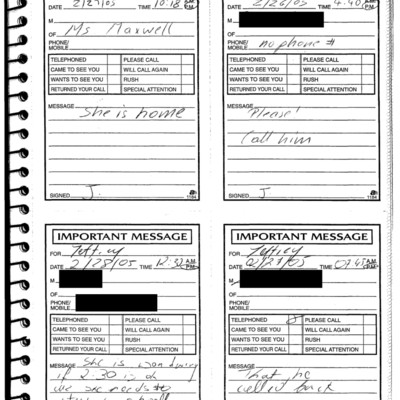 DATE 2/27/05 TIME 10:18 A.M. P.M.
M Ms Maxwell
OF
PHONE/
MOBILE
TELEPHONED PLEASE CALL
CAME TO SEE YOU WILL CALL AGAIN
WANTS TO SEE YOU RUSH
RETURNED YOUR CALL SPECIAL ATTENTION
MESSAGE
She is home
SIGNED J. 1184
DATE 2/26/05 TIME 4:40 A.M. P.M.
M
OF
PHONE/
MOBILE no phone #
TELEPHONED PLEASE CALL
CAME TO SEE YOU WILL CALL AGAIN
WANTS TO SEE YOU RUSH
RETURNED YOUR CALL SPECIAL ATTENTION
MESSAGE
Please!
Call him
SIGNED J 1184
IMPORTANT MESSAGE
FOR Jeffrey
DATE 2/28/05 TIME 12:32 A.M. P.M.
M
OF
PHONE/
MOBILE
TELEPHONED PLEASE CALL
CAME TO SEE YOU WILL CALL AGAIN
WANTS TO SEE YOU RUSH
RETURNED YOUR CALL SPECIAL ATTENTION
MESSAGE She is wondering
if 2:30 is ok
needs to
IMPORTANT MESSAGE
FOR Jeffrey
DATE 02/27/05 TIME 07:45 A.M. P.M.
M
OF
PHONE/
MOBILE
TELEPHONED PLEASE CALL
CAME TO SEE YOU WILL CALL AGAIN
WANTS TO SEE YOU RUSH
RETURNED YOUR CALL SPECIAL ATTENTION
MESSAGE
That he
called back